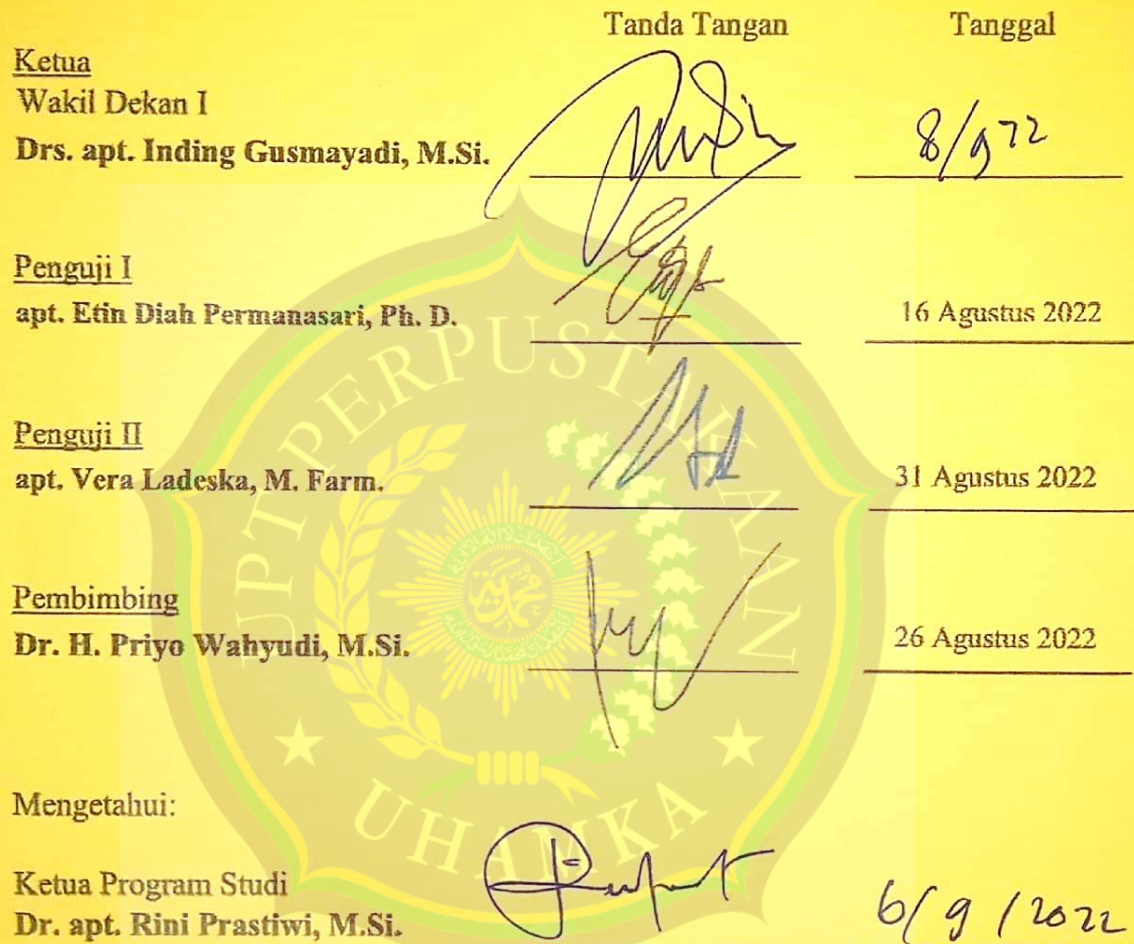 Tanda Tangan Tanggal
Ketua
Wakil Dekan I
Drs. apt. Inding Gusmayadi, M.Si. 8/9 22
Penguji I
apt. Etin Diah Permanasari, Ph. D. 16 Agustus 2022
Penguji II
apt. Vera Ladeska, M. Farm. 31 Agustus 2022
Pembimbing
Dr. H. Priyo Wahyudi, M.Si. 26 Agustus 2022
Mengetahui:
Ketua Program Studi
Dr. apt. Rini Prastiwi, M.Si. 6/9/2022
UPT PERPUSTAKAAN
UHAMKA